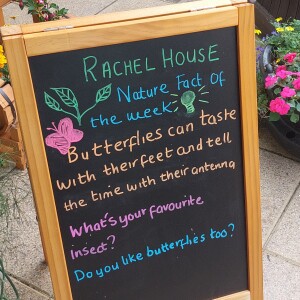 RACHEL HOUSE
Nature Fact Of
the week
Butterflies can taste
with their feet and tell
the time with their antenna
What's your favourite
insect?
Do you like butterflies too?